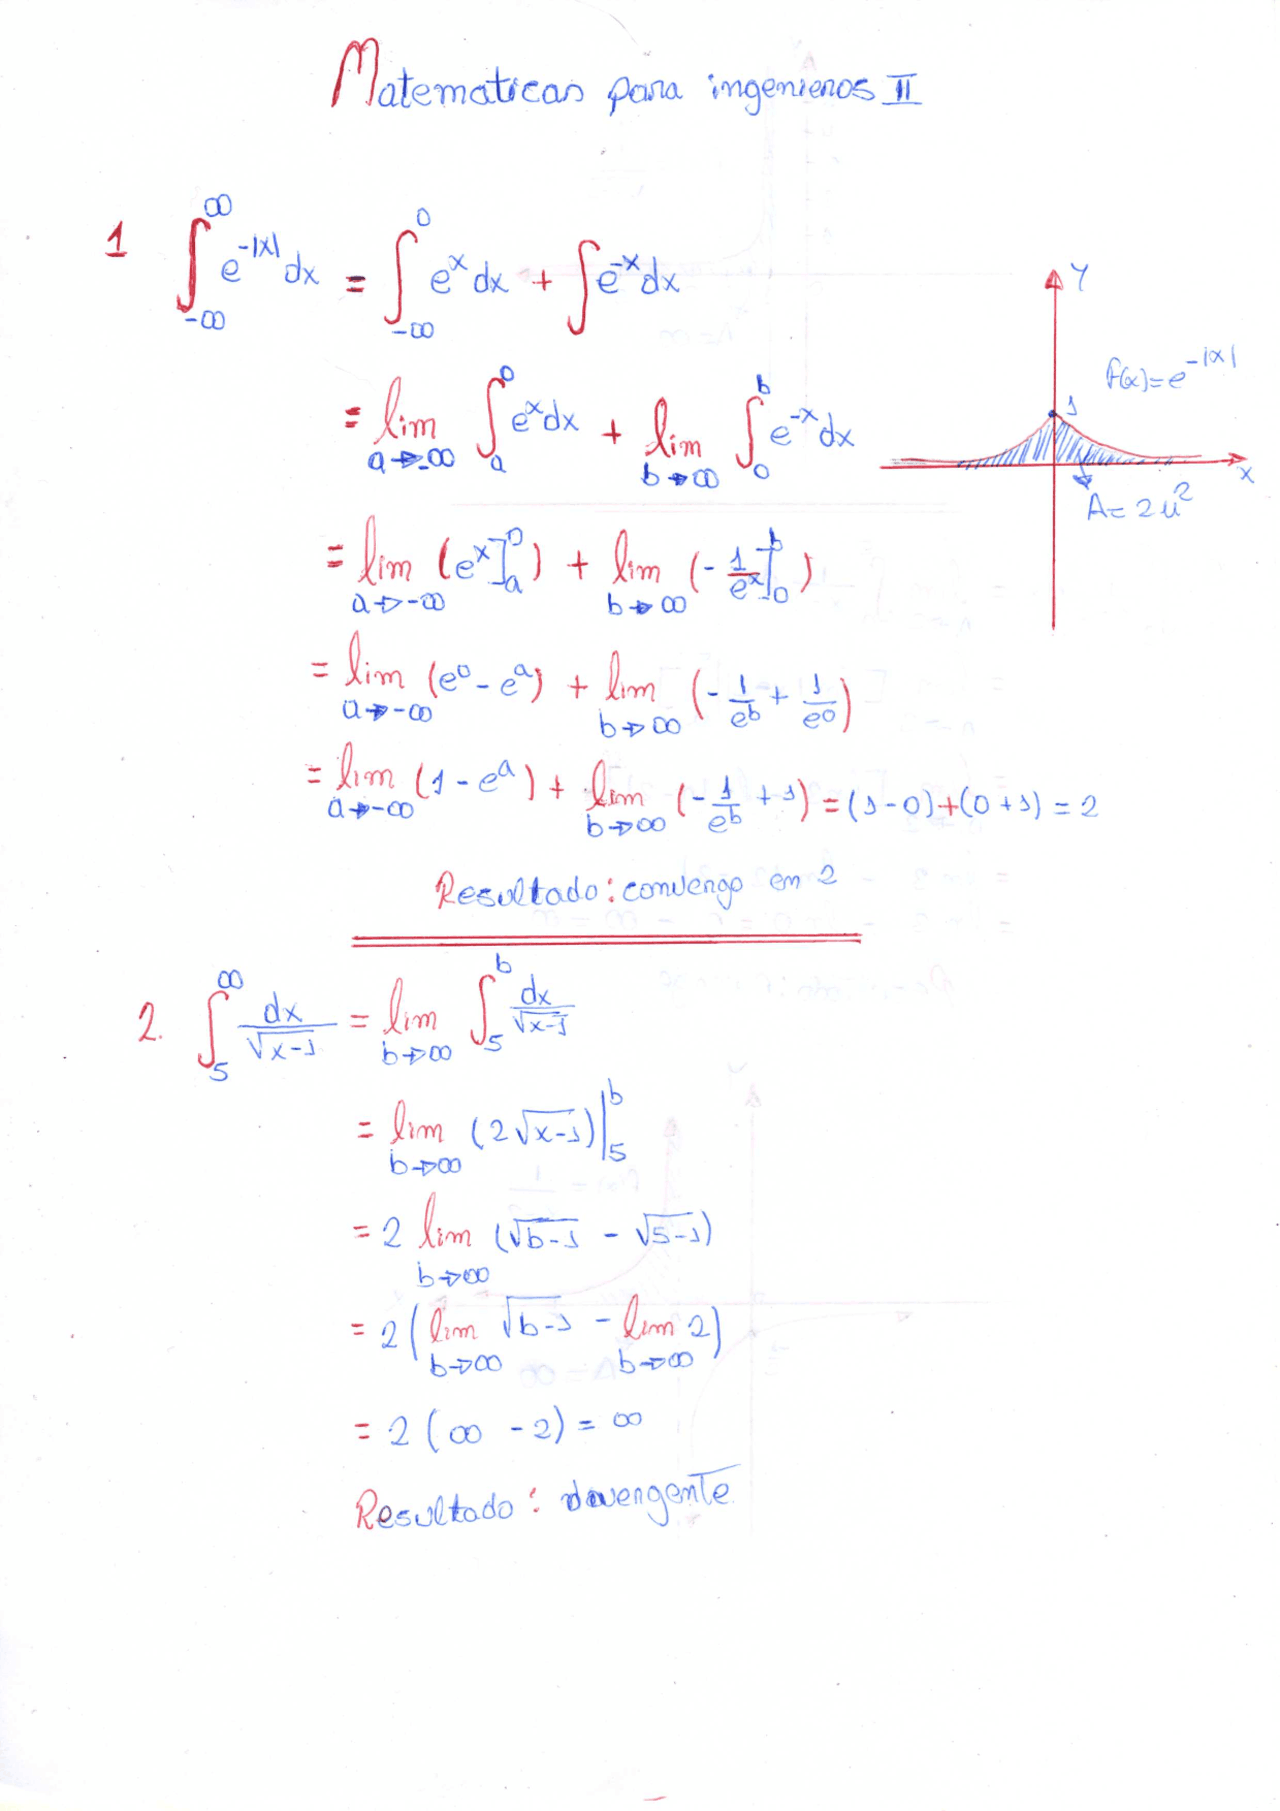 Matematicas para ingenieros II
1 ∫_{-∞}^{∞} e^{-|x|} dx = ∫_{-∞}^{0} e^x dx + ∫ e^{-x} dx
Y
f(x) = e^{-|x|}
1
x
A = 2 u^2
= lim_{a→-∞} ∫_{a}^{0} e^x dx + lim_{b→∞} ∫_{0}^{b} e^{-x} dx
= lim_{a→-∞} (e^x]_{a}^{0}) + lim_{b→∞} (- 1/e^x]_{0}^{b})
= lim_{a→-∞} (e^0 - e^a) + lim_{b→∞} (- 1/e^b + 1/e^0)
= lim_{a→-∞} (1 - e^a) + lim_{b→∞} (- 1/e^b + 1) = (1 - 0) + (0 + 1) = 2
Resultado: convengo en 2
2. ∫_{5}^{∞} dx/√(x-1) = lim_{b→∞} ∫_{5}^{b} dx/√(x-1)
= lim_{b→∞} (2√(x-1))|_{5}^{b}
= 2 lim_{b→∞} (√(b-1) - √(5-1))
= 2 (lim_{b→∞} √(b-1) - lim_{b→∞} 2)
= 2 (∞ - 2) = ∞
Resultado: divengente